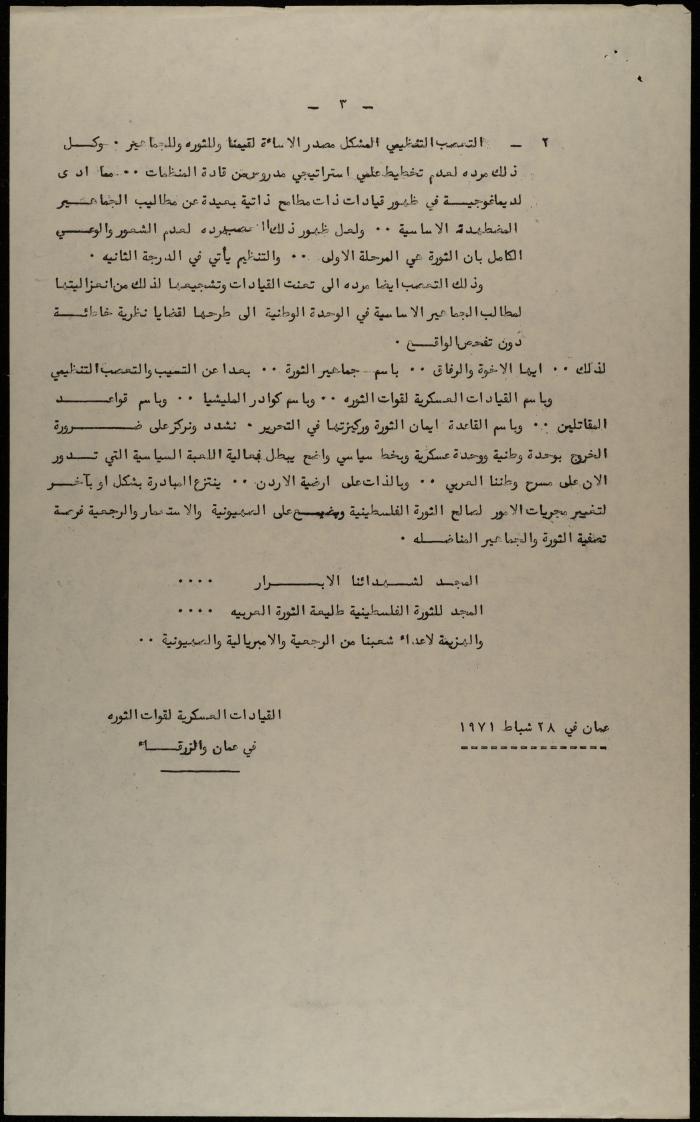 — ٣ —
٢ — التعصب التنظيمي المشكل مصدر الاساءة لقيمنا وللثوره وللجماهير ٠ وكل
ذلك مرده لعدم تخطيط علمي استراتيجي مدروس من قادة المنظمات ٠٠ مما ادى
لديماغوجية في ظهور قيادات ذات مطامح ذاتية بعيدة عن مطاليب الجماهير
المضطهدة الاساسية ٠٠ ولعل ظهور ذلك مرده لعدم الشعور والوعي
الكامل بان الثورة هي المرحلة الاولى ٠٠ والتنظيم يأتي في الدرجة الثانيه ٠
وذلك التعصب ايضا مرده الى تعنت القيادات وتشجيعها لذلك من انعزاليتها
لمطالب الجماهير الاساسية في الوحدة الوطنية الى طرحها لقضايا نظرية خاطئة
دون تفحص الواقع ٠
لذلك ٠٠ ايها الاخوة والرفاق ٠٠ باسم جماهير الثورة ٠٠ بعدا عن التسيب والتعصب التنظيمي
وباسم القيادات العسكرية لقوات الثوره ٠٠ وباسم كوادر المليشيا ٠٠ وباسم قواعد
المقاتلين ٠٠ وباسم القاعدة ايمان الثورة وركيزتها في التحرير ٠ نشدد ونركز على ضرورة
الخروج بوحدة وطنية ووحدة عسكرية وبخط سياسي واضح يبطل فعالية اللعبة السياسية التي تدور
الان على مسرح وطننا العربي ٠٠ وبالذات على ارضية الاردن ٠٠ ينتزع المبادرة بشكل او بآخر
لتغيير مجريات الامور لصالح الثورة الفلسطينية ويضيع على الصهيونية والاستعمار والرجعية فرصة
تصفية الثورة والجماهير المناضله ٠
المجد لشهدائنا الابرار ٠٠٠٠
المجد للثورة الفلسطينية طليعة الثورة العربيه ٠٠٠٠
والهزيمة لاعداء شعبنا من الرجعية والامبريالية والصهيونية ٠٠
القيادات العسكرية لقوات الثوره
عمان في ٢٨ شباط ١٩٧١
في عمان والزرقاء